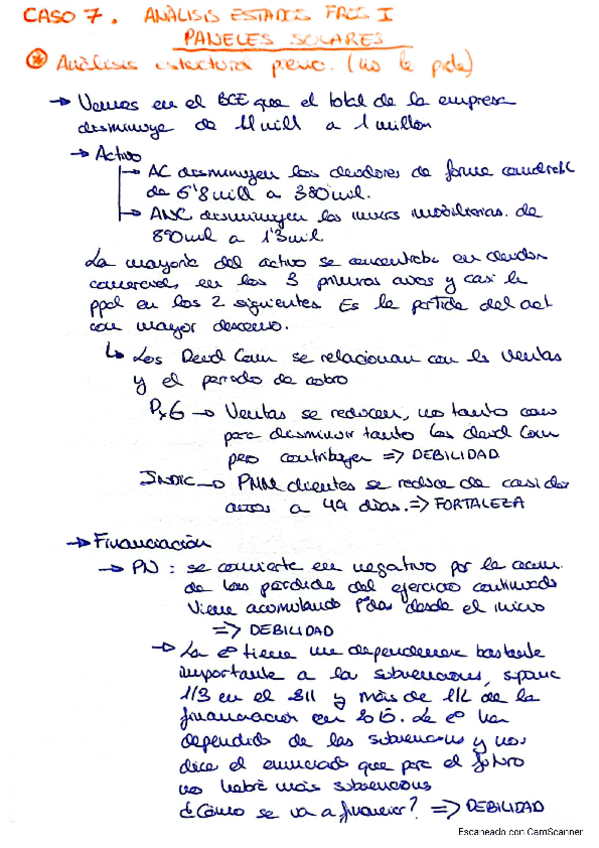 CASO 7. ANÀLISIS ESTADOS FROS I
PANELES SOLARES
Análisis estructura (no lo pide)
→ Vemos en el BCE que el total de la empresa
disminuye de 11 mill a 1 millon
→ Activo
→ AC disminuyen los deudores de forma
de 6'8 mill a 380 mil.
→ ANC disminuyen las invers mobiliarias. de
890 mil a 1'3 mil
La mayoría del activo se concentraba en deudor
comerciales, en los 3 primeros años y casi la
ppal en los 2 siguientes. Es la partida del act
con mayor descenso.
↳ Los Deud Com se relacionan con las ventas
y el periodo de cobro
PxG → Ventas se reducen, no tanto como
para disminuir tanto los deud Com
pero contribuyen => DEBILIDAD
INDIC → PMM clientes se reduce de casi dos
años a 49 días. => FORTALEZA
→ Financiación
→ PN : se convierte en negativo por la acum.
de las perdida del ejercicio continuado
Viene acumulando Pdas desde el inicio
=> DEBILIDAD
→ La eª tiene una dependencia bastante
importante a la subvenciones, supone
1/3 en el 2011 y más de 1/2 de la
financiacion en 2015. La eª ha
dependido de las subvenciones y nos
dice el enunciado que para el futuro
no habrá más subvenciones
¿Cómo se va a financiar? => DEBILIDAD
Escaneado con CamScanner